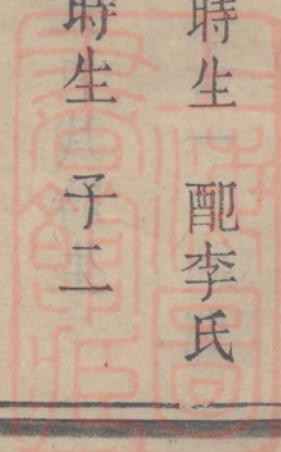 時生 配李氏
時生 子二